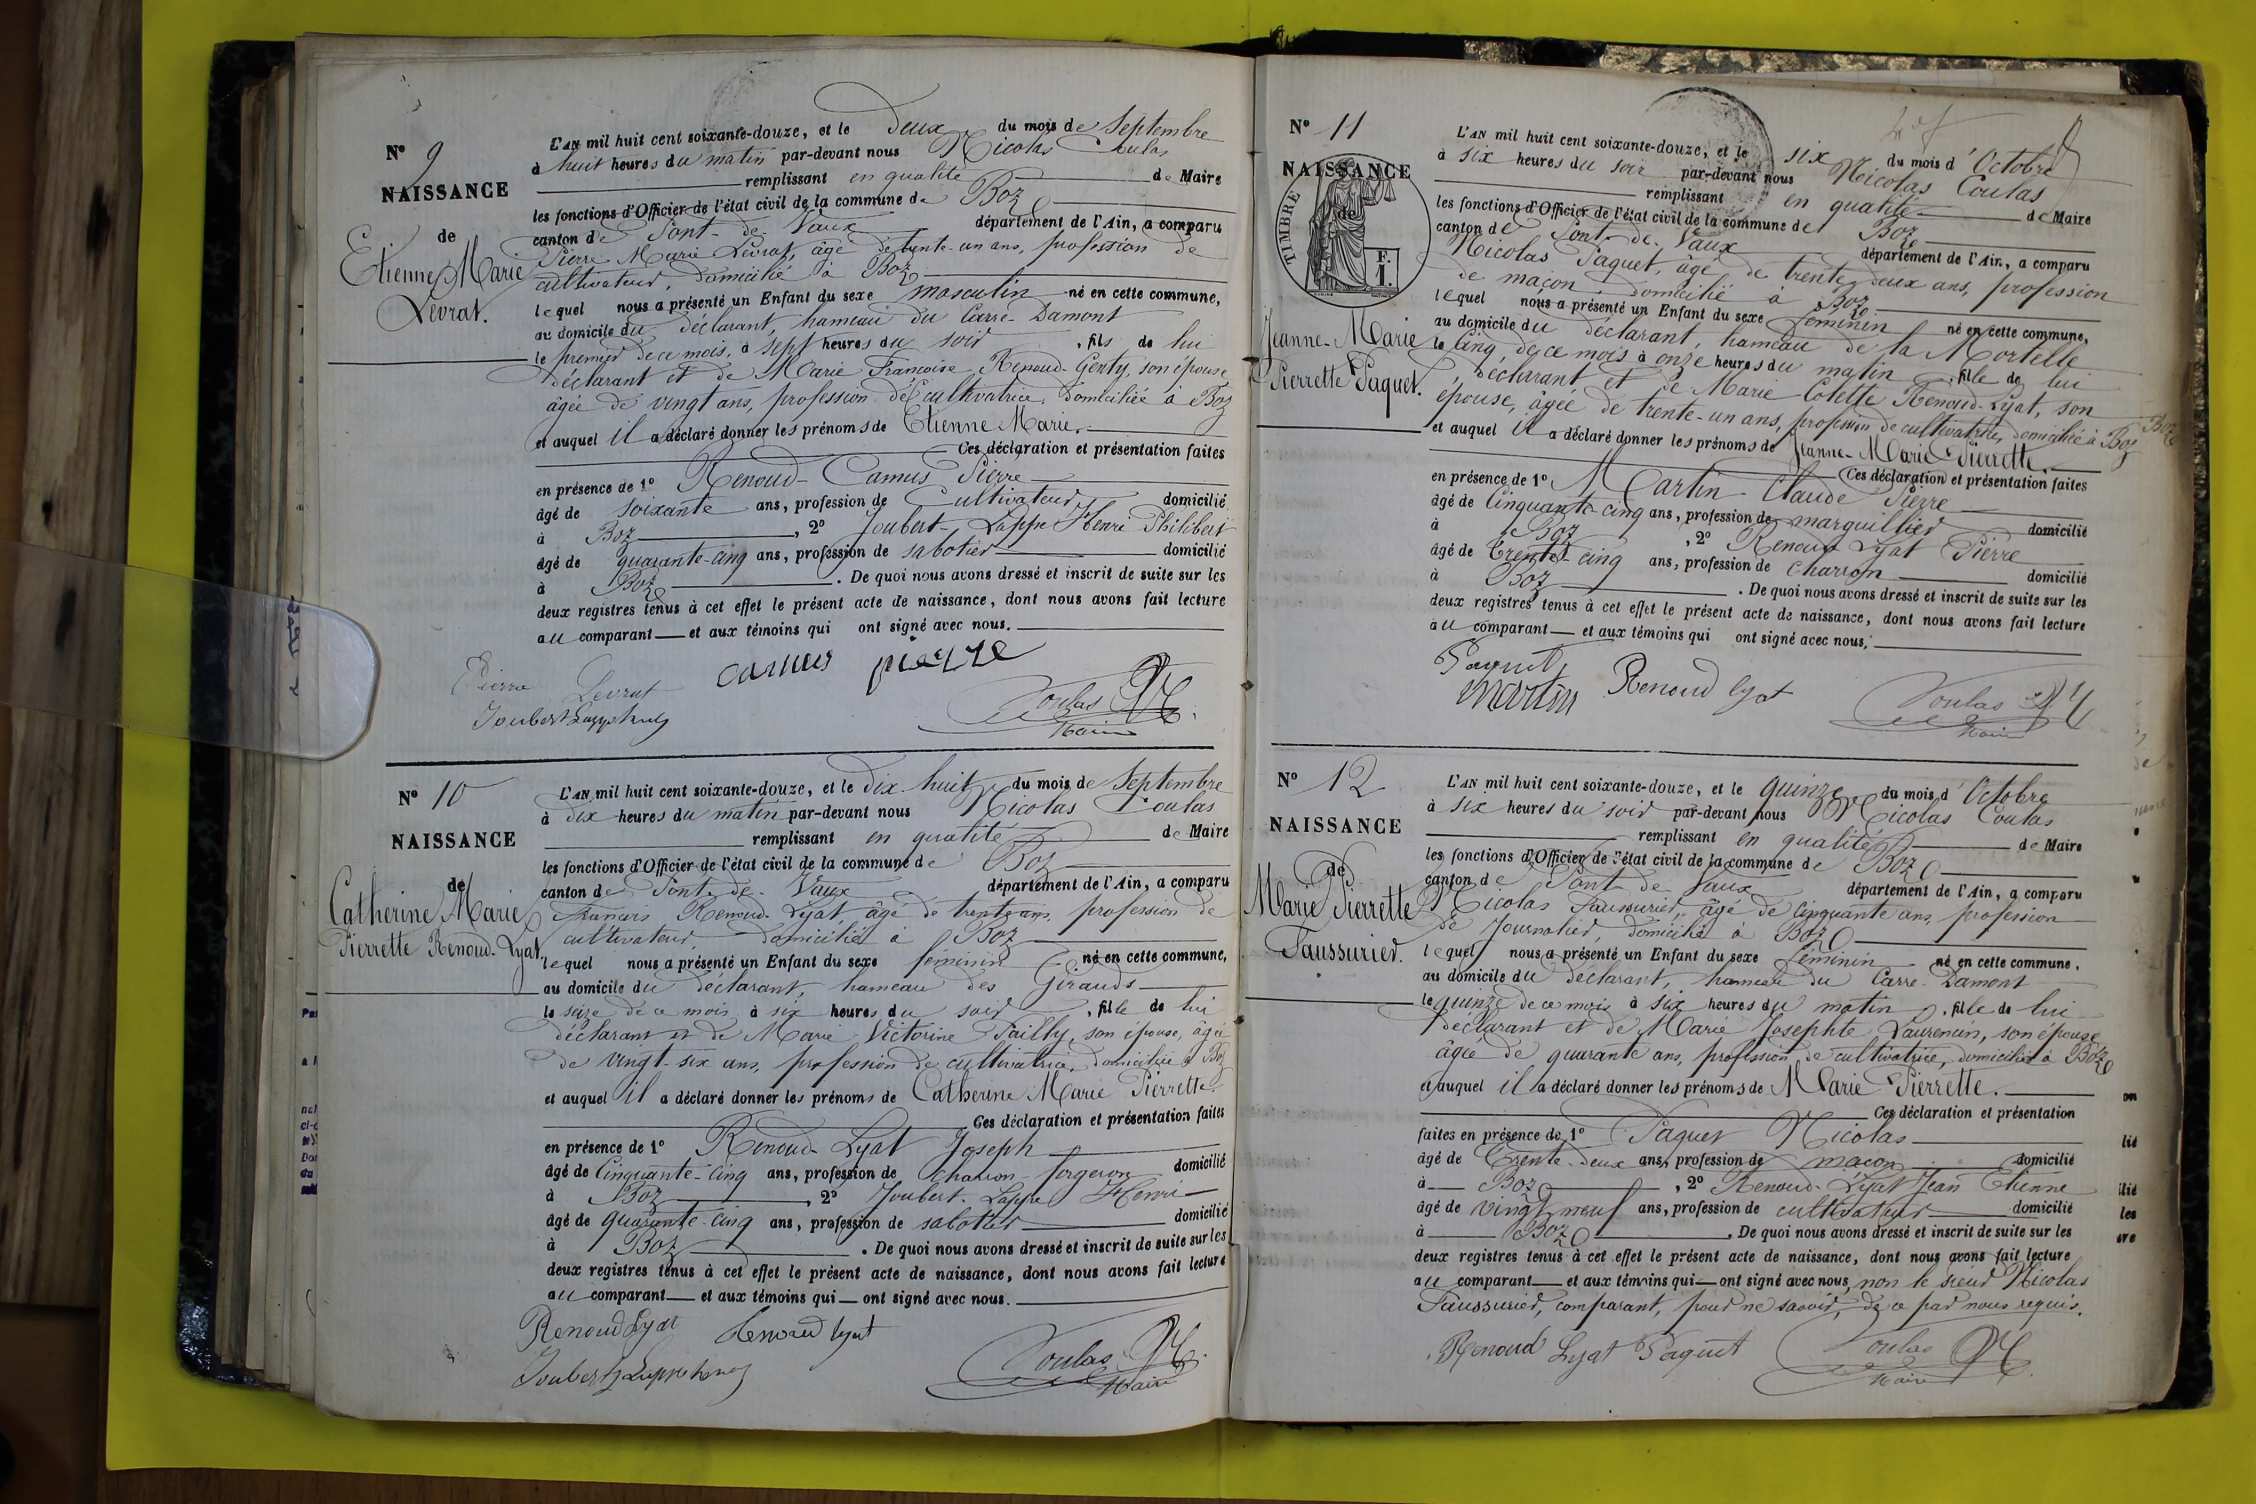 N° 9
NAISSANCE
de
Etienne Marie
Levrat.
L'AN mil huit cent soixante-douze, et le Deux du mois de Septembre
à huit heures du matin par-devant nous Nicolas Coulas
remplissant en qualité de Maire
les fonctions d'Officier de l'état civil de la commune de Boz
canton de Pont-de-Vaux département de l'Ain, a comparu
Pierre Marie Levrat, âgé de trente-un ans, profession de
cultivateur, domicilié à Boz
lequel nous a présenté un Enfant du sexe masculin né en cette commune,
au domicile du déclarant, hameau du Carre-Damont
le premier de ce mois, à sept heures du soir, fils de lui
déclarant et de Marie Françoise Renoud-Genty, son épouse
âgée de vingt ans, profession de cultivatrice, domiciliée à Boz
et auquel il a déclaré donner les prénoms de Etienne Marie.
Ces déclaration et présentation faites
en présence de 1° Renoud-Camus Pierre
âgé de soixante ans, profession de Cultivateur domicilié
à Boz, 2° Joubert-Lappe Henri Philibert
âgé de quarante-cinq ans, profession de sabotier domicilié
à Boz. De quoi nous avons dressé et inscrit de suite sur les
deux registres tenus à cet effet le présent acte de naissance, dont nous avons fait lecture
au comparant et aux témoins qui ont signé avec nous.
Pierre Levrat camus pierre
Joubert Lappe Coulas
Maire
N° 10
NAISSANCE
de
Catherine Marie
Pierrette Renoud-Lyat.
L'AN mil huit cent soixante-douze, et le dix huit du mois de Septembre
à dix heures du matin par-devant nous Nicolas Coulas
remplissant en qualité de Maire
les fonctions d'Officier de l'état civil de la commune de Boz
canton de Pont-de-Vaux département de l'Ain, a comparu
François Renoud-Lyat, âgé de trente ans, profession de
cultivateur, domicilié à Boz
lequel nous a présenté un Enfant du sexe féminin né en cette commune,
au domicile du déclarant, hameau des Girauds
le seize de ce mois à six heures du soir, fille de lui
déclarant et de Marie Victorine Pailly, son épouse, âgée
de vingt-six ans, profession de cultivatrice, domiciliée à Boz
et auquel il a déclaré donner les prénoms de Catherine Marie Pierrette
Ces déclaration et présentation faites
en présence de 1° Renoud Lyat Joseph
âgé de Cinquante-cinq ans, profession de charron forgeron domicilié
à Boz, 2° Joubert-Lappe Henri
âgé de quarante-cinq ans, profession de sabotier domicilié
à Boz. De quoi nous avons dressé et inscrit de suite sur les
deux registres tenus à cet effet le présent acte de naissance, dont nous avons fait lecture
au comparant et aux témoins qui ont signé avec nous.
Renoud Lyat Renoud lyat
Joubert Lappe Coulas
Maire
N° 11
NAISSANCE
de
TIMBRE
F.
1.
Jeanne-Marie
Pierrette Paquet.
L'AN mil huit cent soixante-douze, et le six du mois d'Octobre
à six heures du soir par-devant nous Nicolas Coulas
remplissant en qualité de Maire
les fonctions d'Officier de l'état civil de la commune de Boz
canton de Pont-de-Vaux département de l'Ain, a comparu
Nicolas Paquet, âgé de trente deux ans, profession
de maçon domicilié à Boz
lequel nous a présenté un Enfant du sexe féminin né en cette commune,
au domicile du déclarant, hameau de la Mortelle
le Cinq, de ce mois à onze heures du matin, fille de lui
déclarant et de Marie Colette Renoud-Lyat, son
épouse, âgée de trente-un ans, profession de cultivatrice, domiciliée à Boz
et auquel il a déclaré donner les prénoms de Jeanne-Marie Pierrette.
Ces déclaration et présentation faites
en présence de 1° Martin Claude Pierre
âgé de Cinquante-cinq ans, profession de marguillier domicilié
à Boz, 2° Renoud Lyat Pierre
âgé de trente-cinq ans, profession de charron domicilié
à Boz. De quoi nous avons dressé et inscrit de suite sur les
deux registres tenus à cet effet le présent acte de naissance, dont nous avons fait lecture
au comparant et aux témoins qui ont signé avec nous,
Paquet
Martin Renoud lyat Coulas
Maire
N° 12
NAISSANCE
de
Marie Pierrette
Faussurier.
L'AN mil huit cent soixante-douze, et le quinze du mois d'Octobre
à six heures du soir par-devant nous Nicolas Coulas
remplissant en qualité de Maire
les fonctions d'Officier de l'état civil de la commune de Boz
canton de Pont-de-Vaux département de l'Ain, a comparu
Nicolas Faussurier, âgé de Cinquante ans, profession
de Journalier, domicilié à Boz
lequel nous a présenté un Enfant du sexe féminin né en cette commune,
au domicile du déclarant, hameau du Carre-Damont
le quinze de ce mois à six heures du matin, fille de lui
déclarant et de Marie Josephte Laurencin, son épouse
âgée de quarante ans, profession de cultivatrice, domiciliée à Boz
et auquel il a déclaré donner les prénoms de Marie Pierrette.
Ces déclaration et présentation
faites en présence de 1° Paquet Nicolas
âgé de Trente-deux ans, profession de maçon domicilié
à Boz, 2° Renoud-Lyat Jean Etienne
âgé de vingt neuf ans, profession de cultivateur domicilié
à Boz. De quoi nous avons dressé et inscrit de suite sur les
deux registres tenus à cet effet le présent acte de naissance, dont nous avons fait lecture
au comparant et aux témoins qui ont signé avec nous, non le sieur Nicolas
Faussurier, comparant, pour ne savoir, de ce par nous requis.
Renoud Lyat Paquet Coulas
Maire